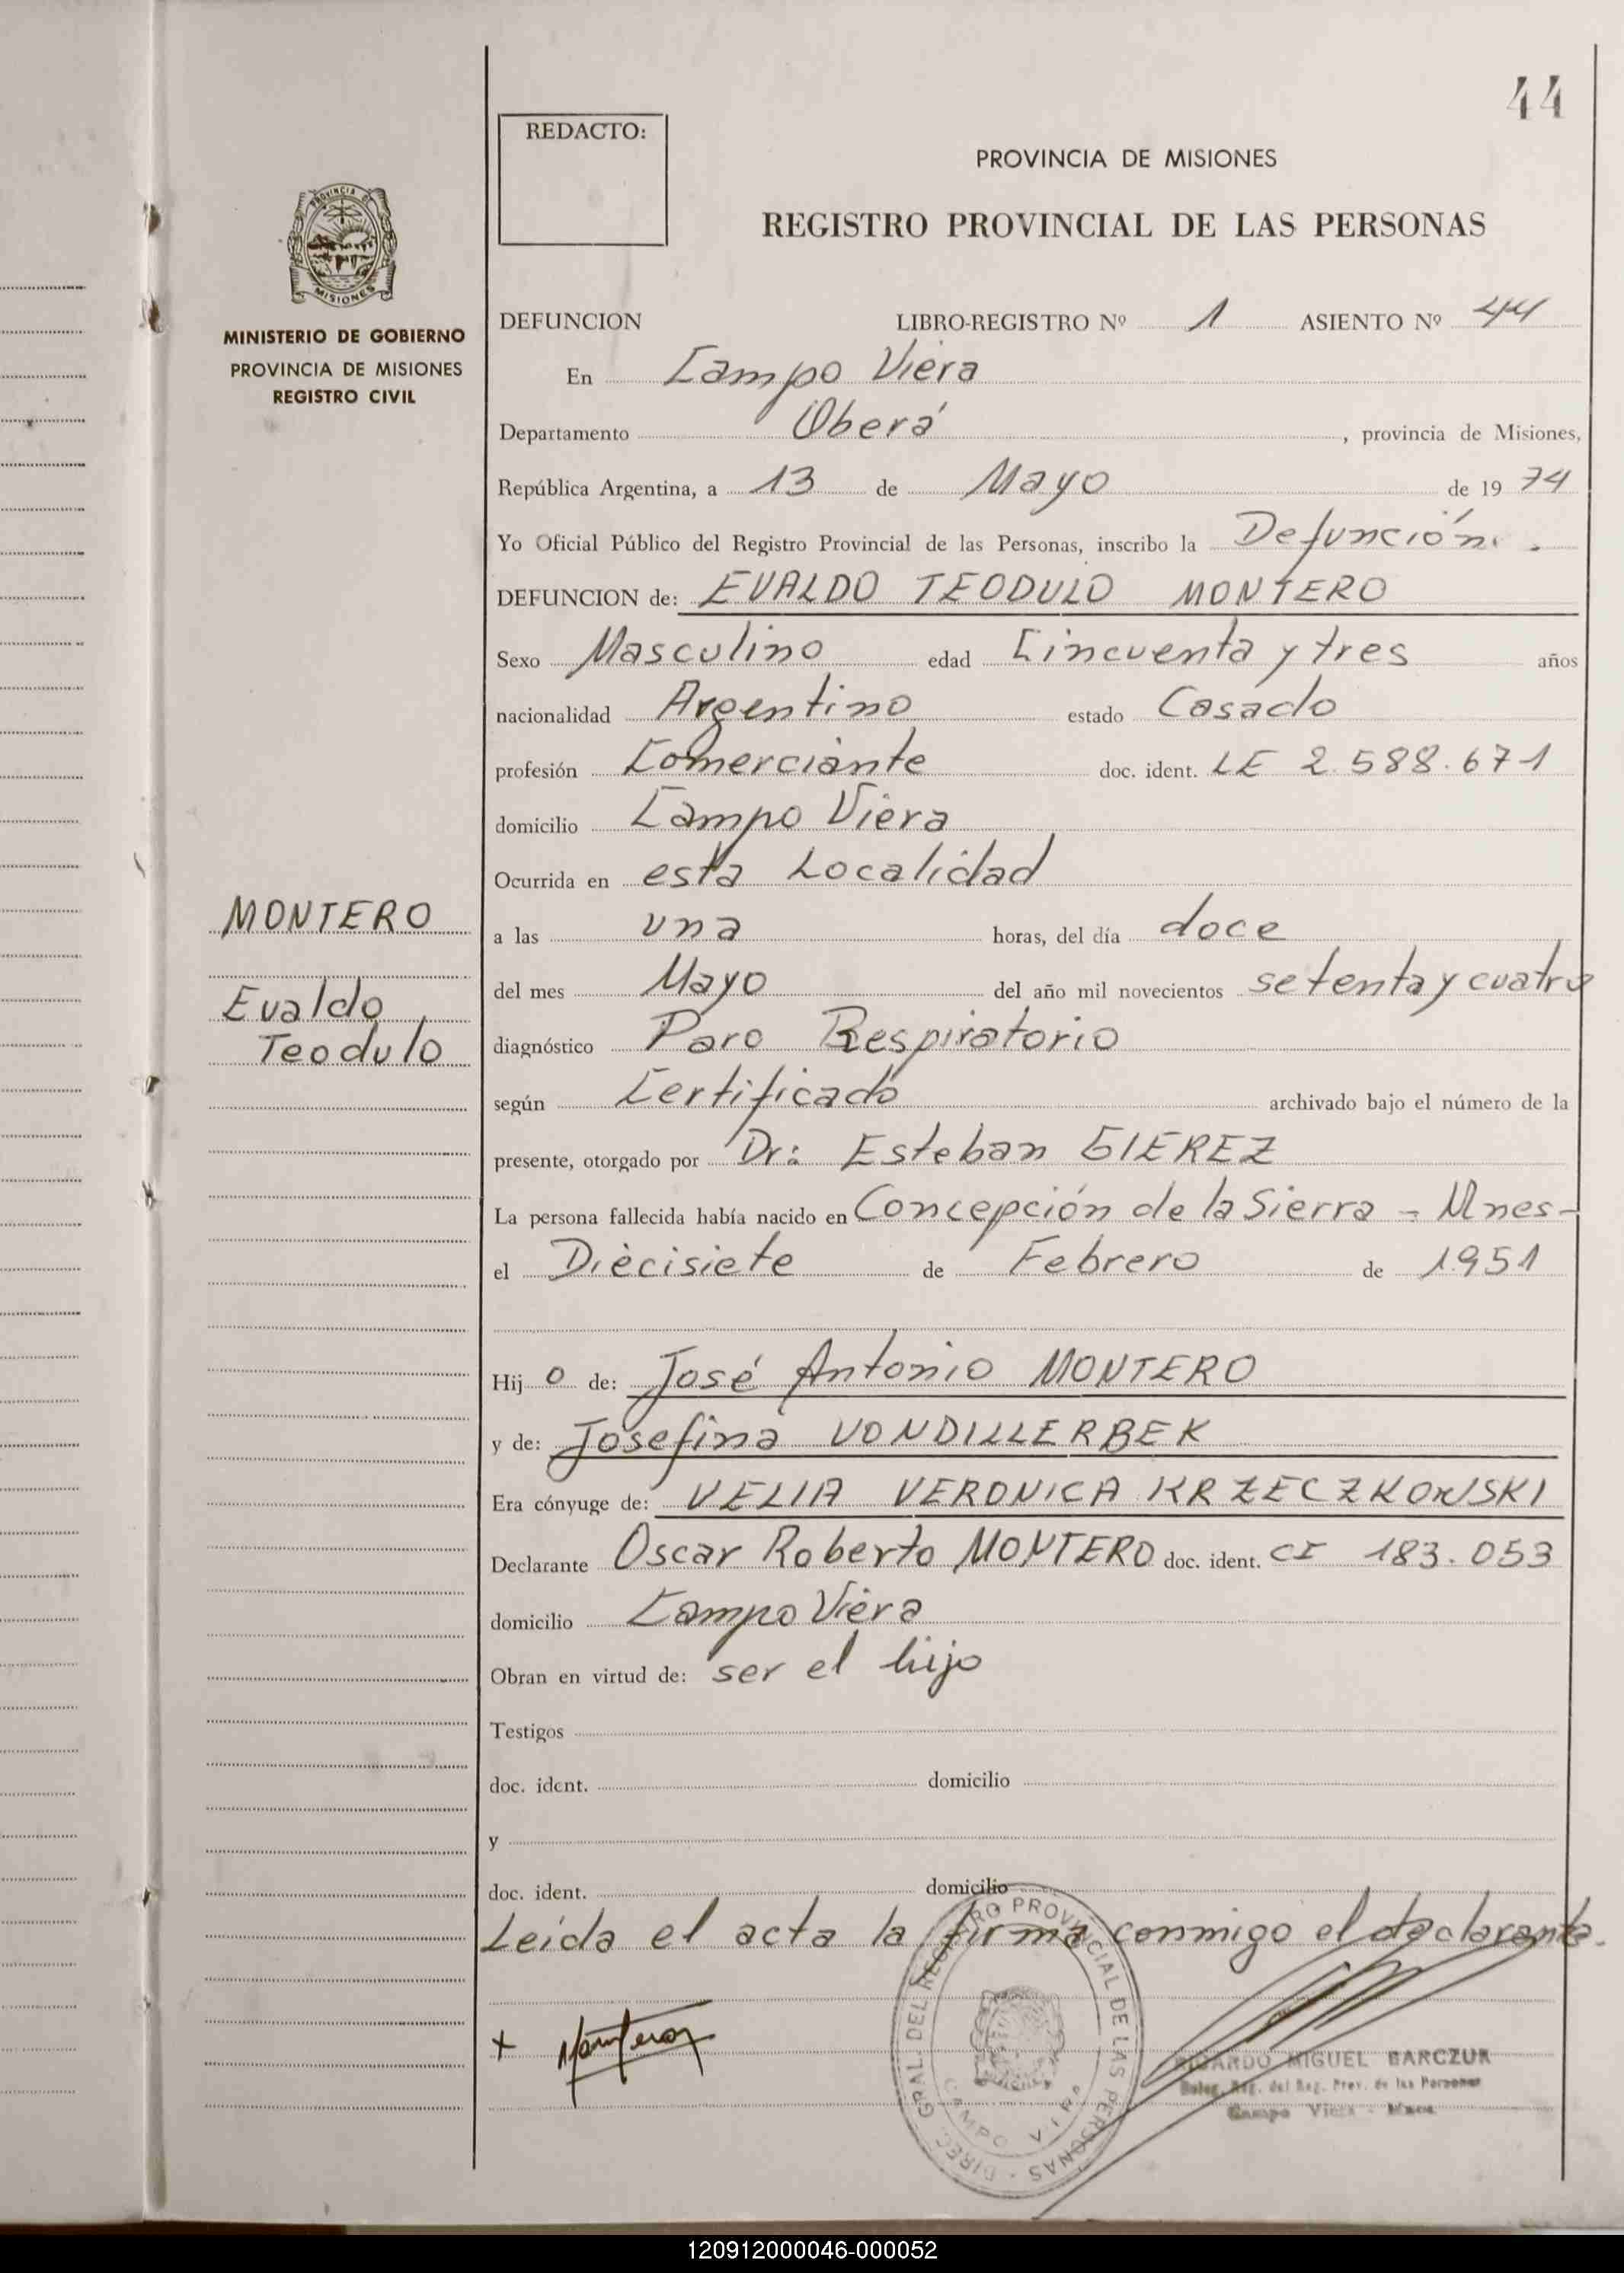 44
REDACTO:
PROVINCIA DE MISIONES
REGISTRO PROVINCIAL DE LAS PERSONAS
PROVINCIA DE
MISIONES
MINISTERIO DE GOBIERNO
PROVINCIA DE MISIONES
REGISTRO CIVIL
DEFUNCION LIBRO-REGISTRO Nº 1 ASIENTO Nº 44
En Campo Viera
Departamento Oberá, provincia de Misiones,
República Argentina, a 13 de Mayo de 1974
Yo Oficial Público del Registro Provincial de las Personas, inscribo la Defunción.
DEFUNCION de: EVALDO TEODULO MONTERO
Sexo Masculino edad Cincuenta y tres años
nacionalidad Argentino estado Casado
profesión Comerciante doc. ident. LE 2.588.671
domicilio Campo Viera
Ocurrida en esta Localidad
MONTERO
Evaldo
Teodulo
a las una horas, del día doce
del mes Mayo del año mil novecientos setenta y cuatro
diagnóstico Paro Respiratorio
según Certificado archivado bajo el número de la
presente, otorgado por Dr: Esteban GIEREZ
La persona fallecida había nacido en Concepción de la Sierra - Mnes-
el Diecisiete de Febrero de 1951
Hijo de: José Antonio MONTERO
y de: Josefina VONDILLERBEK
Era cónyuge de: VELIA VERONICA KRZECZKOWSKI
Declarante Oscar Roberto MONTERO doc. ident. CI 183.053
domicilio Campo Viera
Obran en virtud de: ser el hijo
Testigos
doc. ident. domicilio
y
doc. ident. domicilio
Leída el acta la firma conmigo el declarante.
+ Montero
DIREC. GRAL. DEL REGISTRO PROVINCIAL DE LAS PERSONAS
CAMPO VIERA
RICARDO MIGUEL BARCZUK
Deleg. Reg. del Reg. Prov. de las Personas
Campo Viera - Mnes.
120912000046-000052